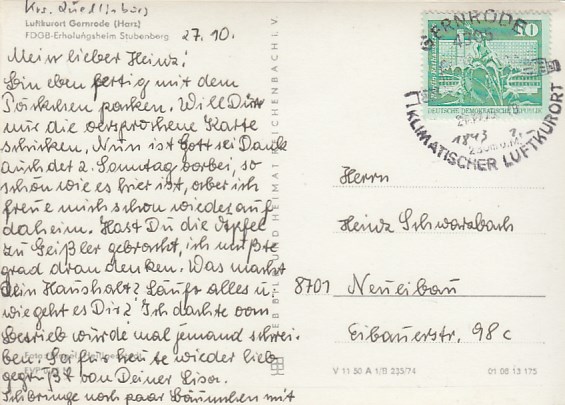 Krs. Quedlinburg
Luftkurort Gernrode (Harz)
FDGB-Erholungsheim Stubenberg
27.10.
Mein lieber Heinz!
Bin eben fertig mit dem
Päckchen packen. Will Dir
nur die versprochene Karte
schicken. Nun ist Gott sei Dank
auch der 2. Sonntag vorbei, so
schön wie es hier ist, aber ich
freue mich schon wieder auf
daheim. Hast Du die Äpfel
zu Geißler gebracht, ich mußte
grad dran denken. Was macht
Dein Haushalt? Läuft alles u.
wie geht es Dir? Ich dachte vom
Betrieb würde mal jemand schrei-
ben. So für heute wieder lieb
gegrüßt von Deiner
Ich bringe noch paar Bäumchen mit
VEB BILD UND HEIMAT REICHENBACH I. V.
GERNRODE
4305
KLIMATISCHER LUFTKURORT
DEUTSCHE DEMOKRATISCHE REPUBLIK
10
Herrn
Heinz Schwarzbach
8701 Neueibau
Eibauerstr. 98c
V 11 50 A 1/B 235/74
01 06 13 175